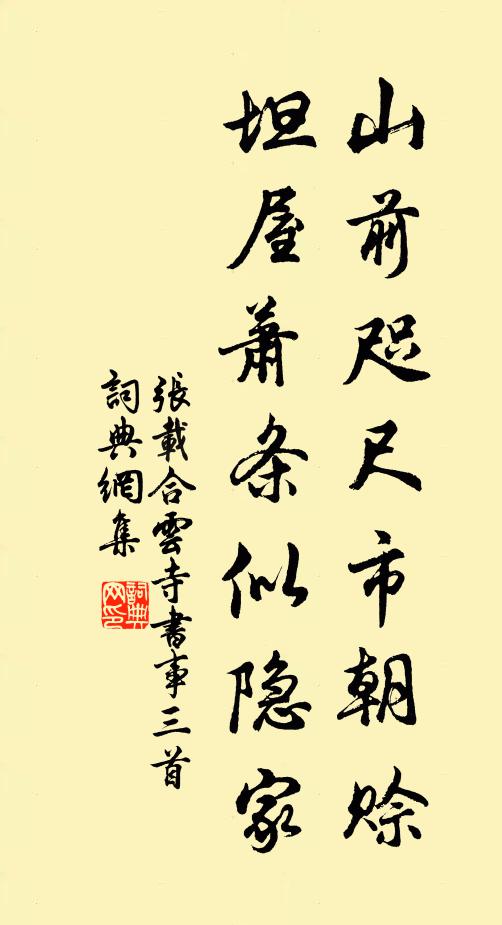 山前咫尺市朝赊
坦屋萧条似隐家
張載合雲寺書事三首
詞典網集
詞典网印